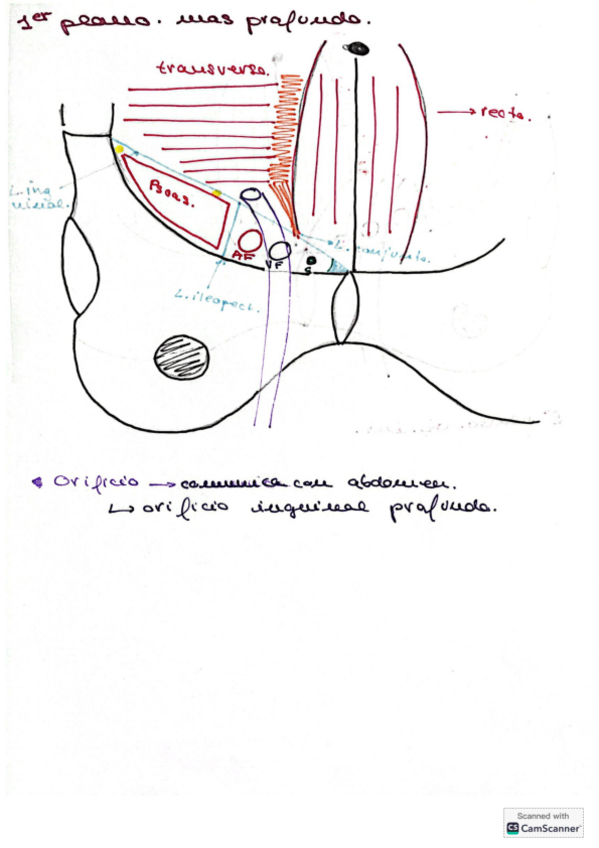 1er plano. mas profundo.
transverso.
recto.
L. ing
uinal.
Psoas.
L. conjunto.
AF
VF
S
L. ileopect.
Orificio → comunica con abdomen.
↳ orificio inguinal profundo.
Scanned with
CS CamScanner